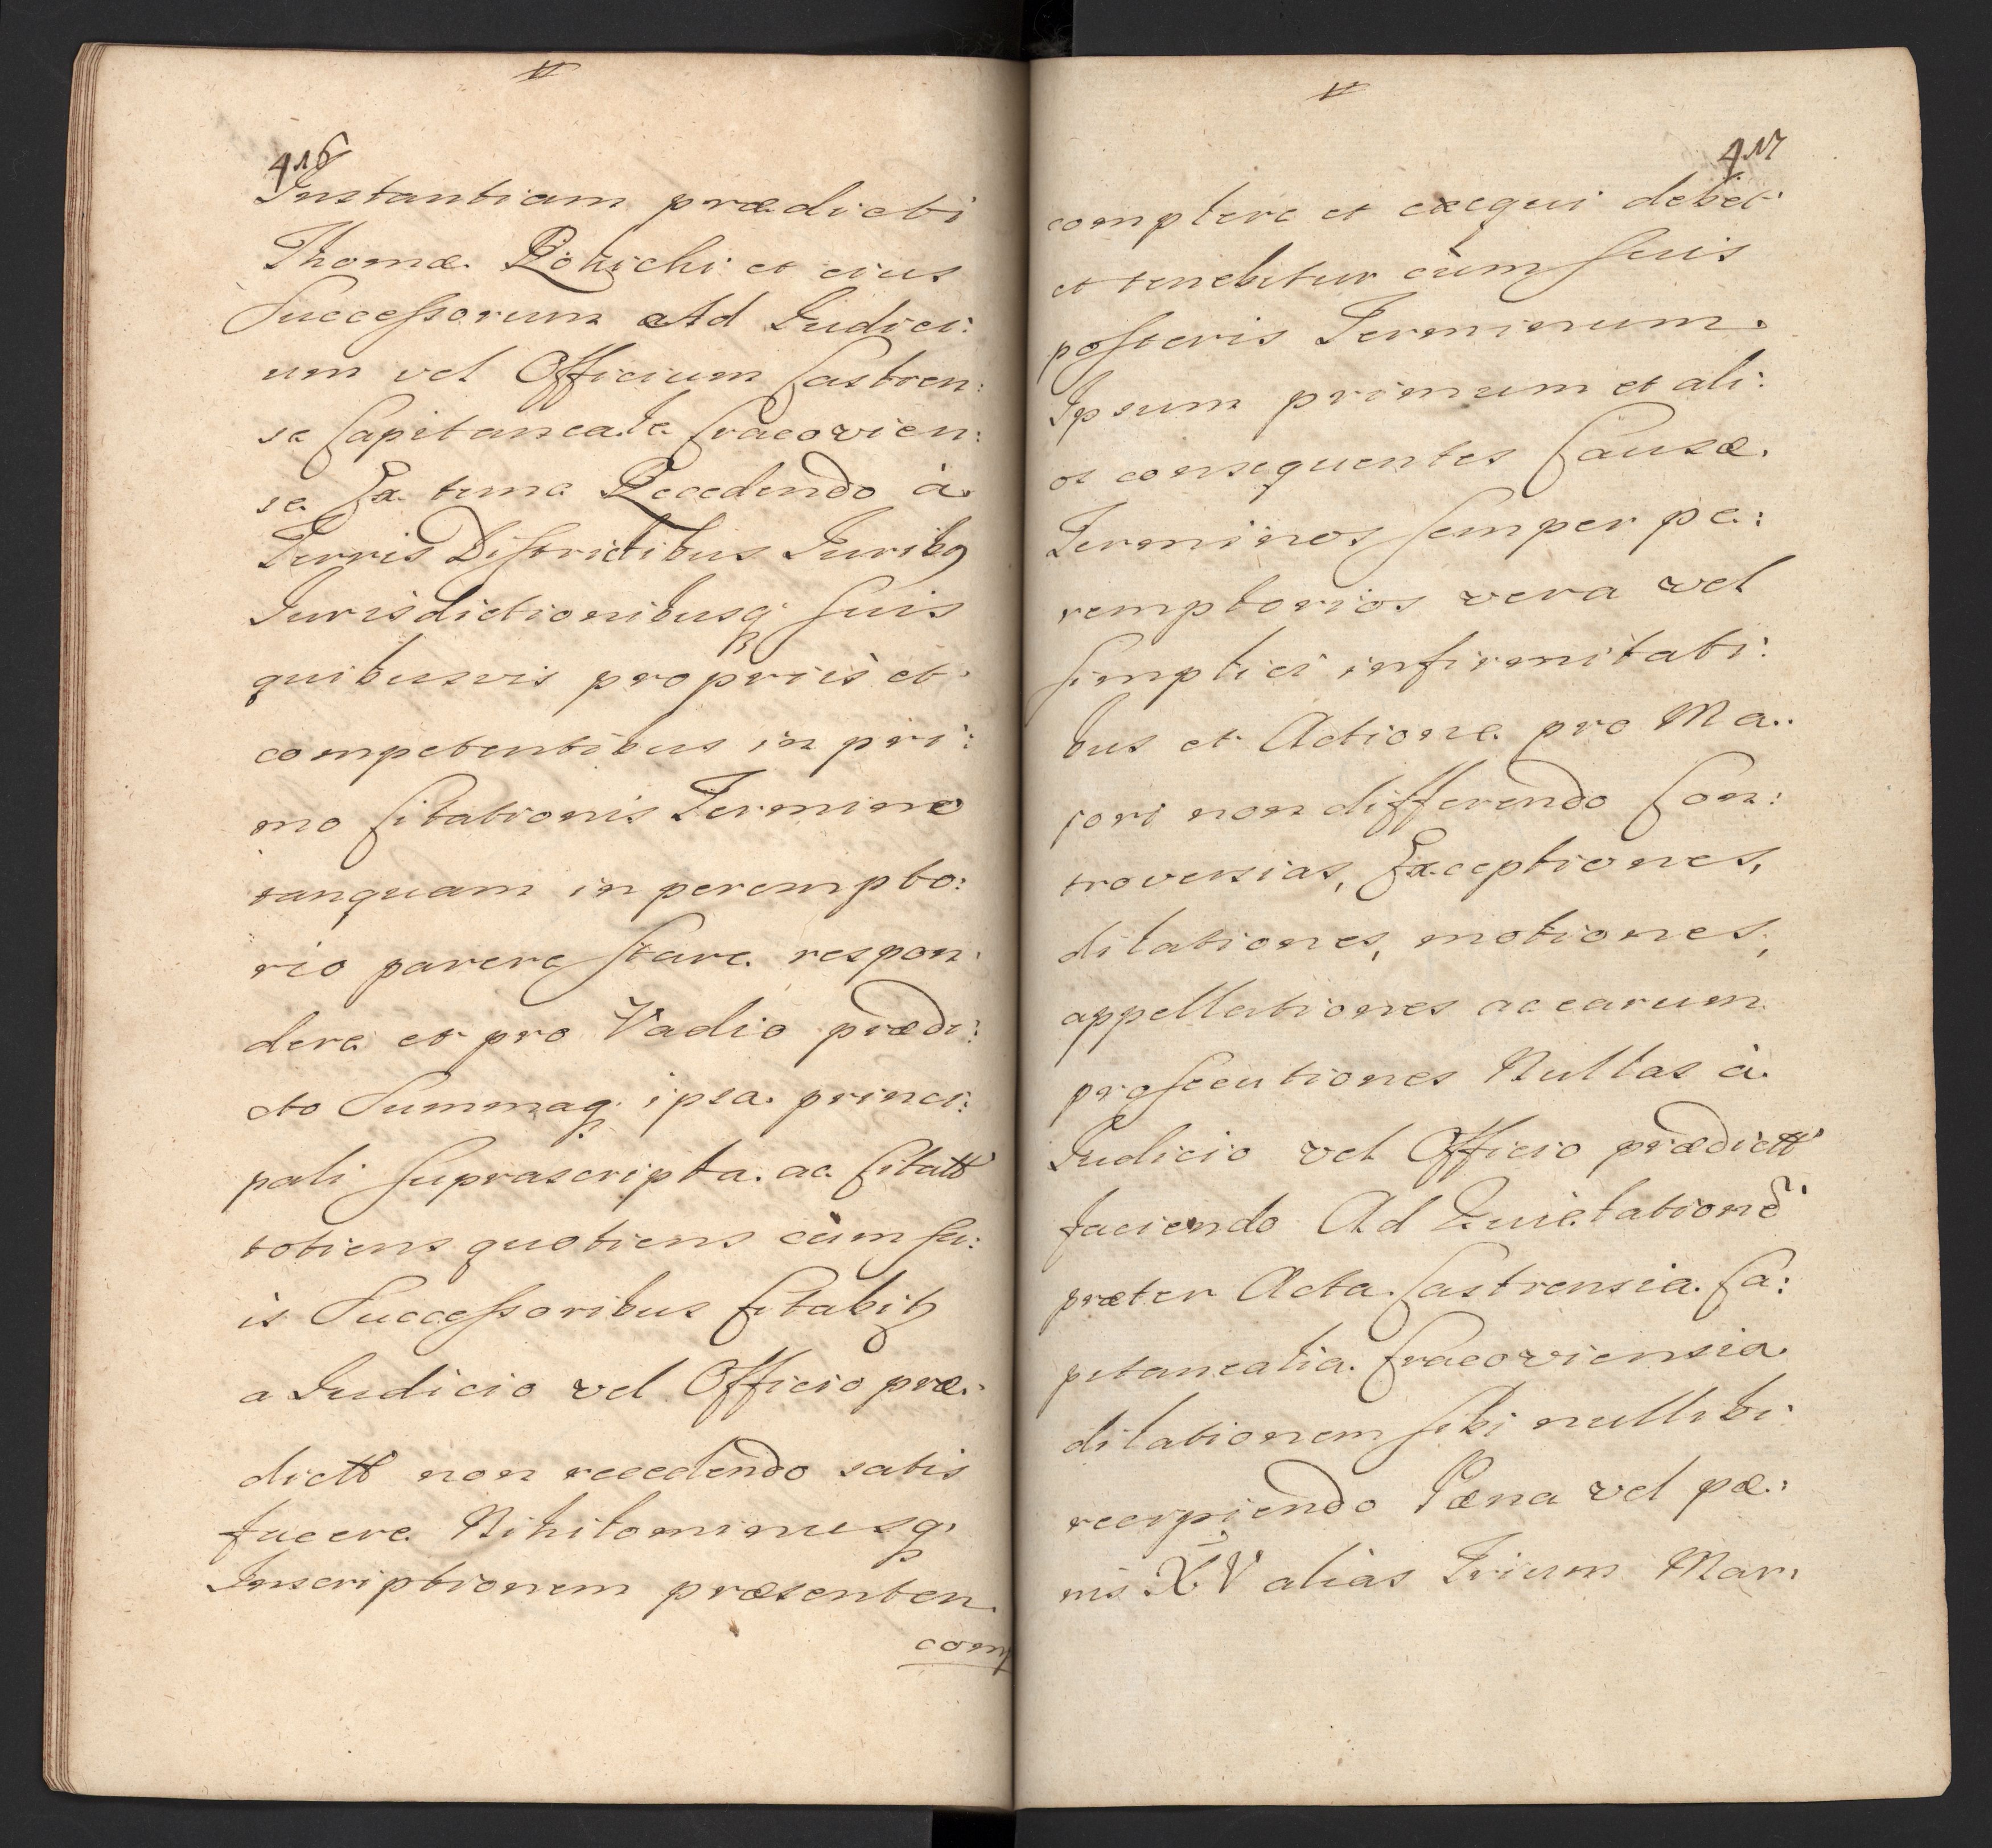 416
Instantiam prædicti
Thomæ et eius
Successorum Ad Iudici:
um vel Officium Castren:
se Capitaneale Cracovien:
se Ex tunc Recedendo à
Terris Districtibus Iuribq
Iurisdictionibusq suis
quibusvis proprijs et
competentibus in pri:
mo Citationis Termino
tanquam in perempto:
rio parere stare respon:
dere et pro Vadio prædi:
cto Summaq ipsa princi:
pali suprascripta ac Citatt
totiens quotiens cùm su:
is Successoribus Citabit
a Iudicio vel Officio præ:
dictt non recedendo satis
facere Nihilominusq
Inscriptionem præsentem
comp
417
complere et exequi debet
et tenebitur cùm suis
posteris Terminum
Ipsum primum et ali:
os consequentes Causæ
Terminos semper pe:
remptorios vera vel
simplici infirmitati:
bus et Actione pro Ma:
iori non differendo Con:
troversias, Exceptiones,
dilationes, motiones,
appellationes ac earum
prosecutiones Nullas à
Iudicio vel Officio prædictt
faciendo Ad Quietationē
præter Acta Castrensia Ca:
pitanealia Cracoviensia
dilationem sibi nullibi
recipiendo Pæna vel pæ:
nis XV alias Trium Mar: